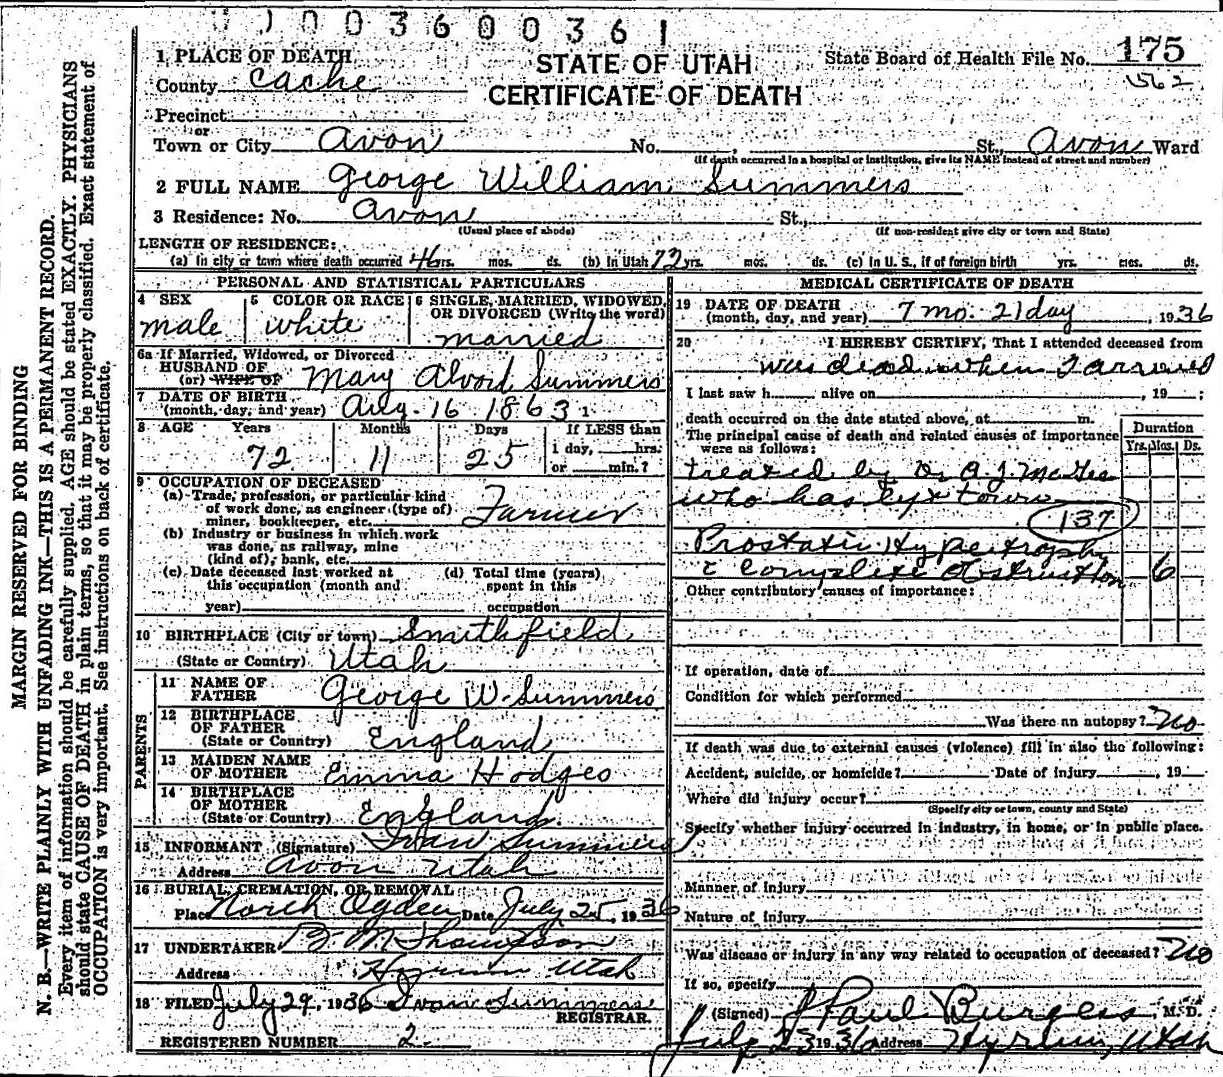 003600361
1 PLACE OF DEATH
STATE OF UTAH
CERTIFICATE OF DEATH
State Board of Health File No. 175
562
County Cache
Precinct
or
Town or City Avon No. , St., Avon Ward
(If death occurred in a hospital or institution, give its NAME instead of street and number)
2 FULL NAME George William Summers
3 Residence: No. Avon St.,
(Usual place of abode) (If non-resident give city or town and State)
LENGTH OF RESIDENCE:
(a) In city or town where death occurred 46 yrs. mos. ds. (b) In Utah 72 yrs. mos. ds. (c) In U. S., if of foreign birth yrs. mos. ds.
PERSONAL AND STATISTICAL PARTICULARS
4 SEX male
5 COLOR OR RACE white
6 SINGLE, MARRIED, WIDOWED, OR DIVORCED (Write the word) married
6a If Married, Widowed, or Divorced
HUSBAND OF
(or) WIFE OF Mary Alvord Summers
7 DATE OF BIRTH
(month, day, and year) Aug. 16 1863
8 AGE Years Months Days If LESS than
72 11 25 1 day, hrs.
or min.?
9 OCCUPATION OF DECEASED
(a) Trade, profession, or particular kind
of work done, as engineer (type of)
miner, bookkeeper, etc. Farmer
(b) Industry or business in which work
was done, as railway, mine
(kind of), bank, etc.
(c) Date deceased last worked at
this occupation (month and
year)
(d) Total time (years)
spent in this
occupation
10 BIRTHPLACE (City or town) Smithfield
(State or Country) Utah
PARENTS
11 NAME OF
FATHER George W. Summers
12 BIRTHPLACE
OF FATHER
(State or Country) England
13 MAIDEN NAME
OF MOTHER Emma Hodges
14 BIRTHPLACE
OF MOTHER
(State or Country) England
15 INFORMANT (Signature) Ivan Summers
Address Avon Utah
16 BURIAL, CREMATION, OR REMOVAL
Place North Ogden Date July 25, 1936
17 UNDERTAKER M Thompson
Address Hyrum Utah
18 FILED July 29, 1936 Ivan Summers
REGISTRAR.
REGISTERED NUMBER 2
MEDICAL CERTIFICATE OF DEATH
19 DATE OF DEATH
(month, day, and year) 7 mo. 21 day , 1936
20 I HEREBY CERTIFY, That I attended deceased from
was dead when I arrived
I last saw h alive on , 19 ;
death occurred on the date stated above, at m.
The principal cause of death and related causes of importance
were as follows:
Duration
Yrs. Mos. Ds.
treated by Dr A. J. McGee
who has left town
137
Prostatic Hypertrophy
c complete obstruction 6
Other contributory causes of importance:
If operation, date of
Condition for which performed
Was there an autopsy? No
If death was due to external causes (violence) fill in also the following:
Accident, suicide, or homicide? Date of injury , 19
Where did injury occur?
(Specify city or town, county and State)
Specify whether injury occurred in industry, in home, or in public place.
Manner of injury
Nature of injury
Was disease or injury in any way related to occupation of deceased? No
If so, specify
(Signed) J Paul Burgess, M. D.
July 23 1936 Address Hyrum, Utah
MARGIN RESERVED FOR BINDING
N. B.—WRITE PLAINLY WITH UNFADING INK—THIS IS A PERMANENT RECORD.
Every item of information should be carefully supplied. AGE should be stated EXACTLY. PHYSICIANS
should state CAUSE OF DEATH in plain terms, so that it may be properly classified. Exact statement of
OCCUPATION is very important. See instructions on back of certificate.